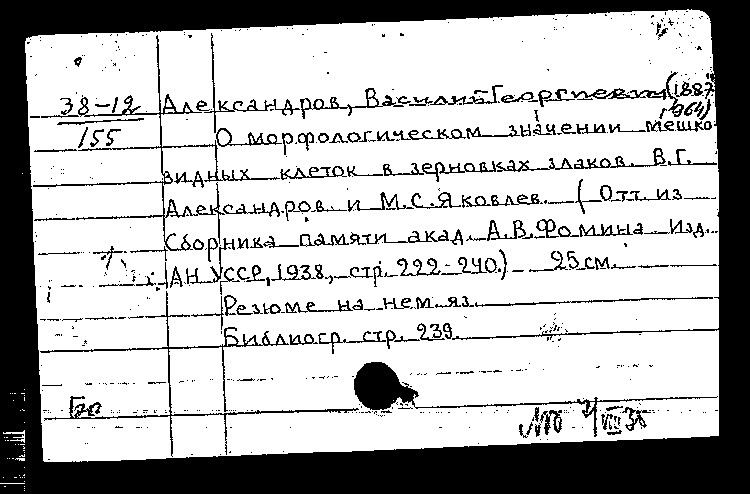 38-12
155
Александров, Василий Георгиевич (1887
1964)
О морфологическом значении мешко
видных клеток в зерновках злаков. В.Г.
Александров. и М.С. Яковлев. (Отт. из
Сборника памяти акад. А.В. Фомина. Изд.
АН УССР, 1938, стр. 222-240.) 25 см.
Резюме на нем. яз.
Библиогр. стр. 239.